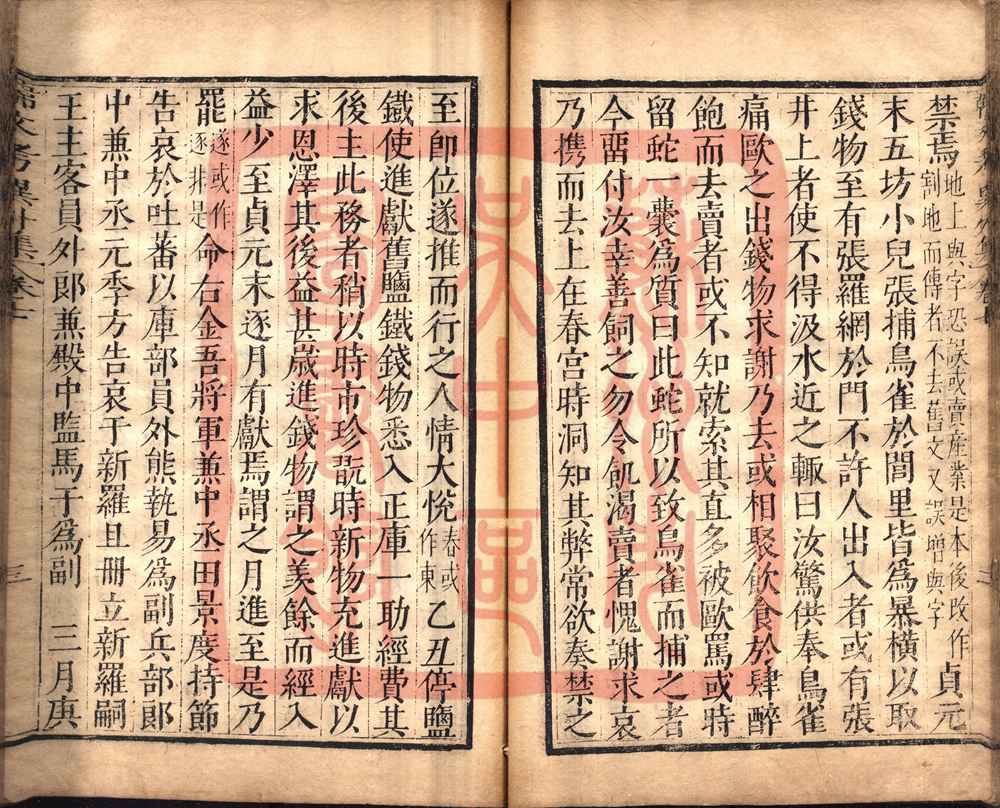 禁焉地上與字恐誤或賣產業是本後改作割地而傳者不去舊文又誤增與字貞元
末五坊小兒張捕鳥雀於閭里皆爲暴橫以取
錢物至有張羅網於門不許人出入者或有張
井上者使不得汲水近之輒曰汝驚供奉鳥雀
痛歐之出錢物求謝乃去或相聚飲食於肆醉
飽而去賣者或不知就索其直多被歐罵或時
留蛇一囊爲質曰此蛇所以致鳥雀而捕之者
今畱付汝幸善飼之勿令飢渴賣者愧謝求哀
乃携而去上在春宮時洞知其弊常欲奏禁之
至卽位遂推而行之人情大悅春或作東乙丑停鹽
鐵使進獻舊鹽鐵錢物悉入正庫一助經費其
後主此務者稍以時市珍翫時新物充進獻以
求恩澤其後益甚歲進錢物謂之羙餘而經入
益少至貞元末逐月有獻焉謂之月進至是乃
罷逐或作遂非是命右金吾將軍兼中丞田景度持節
告哀於吐蕃以庫部員外熊執易爲副兵部郎
中兼中丞元季方告哀于新羅且冊立新羅嗣
王主客員外郎兼殿中監馬于爲副　三月庚
三